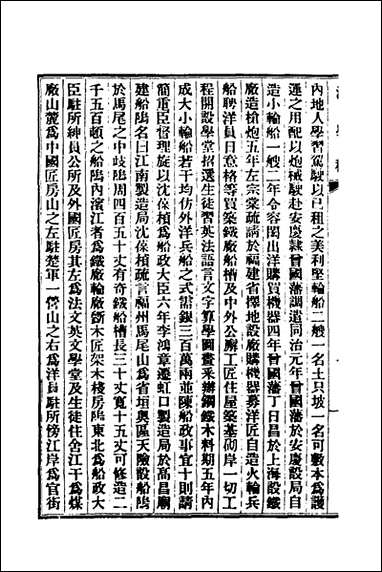 內地人學習駕駛以已租之美利堅輪船二艘一名土只坡一名可敷本爲護
運之用配以炮械駛赴安慶隸曾國藩調遣同治元年曾國藩於安慶設局自
造小輪船一艘二年令容閎出洋購買機器四年曾國藩丁日昌於上海設鐵
廠造槍炮五年左宗棠疏請於福建省擇地設廠購機器募洋匠自造火輪兵
船聘洋員日意格等買築鐵廠船槽及中外公廨工匠住屋築基砌岸一切工
程開設學堂招選生徒習英法語言文字算學圖畫釆辦鋼鐵木料期五年內
成大小輪船若干均仿外洋兵船之式需銀三百萬兩並陳船政事宜十則請
簡重臣督理旋以沈葆楨爲船政大臣六年李鴻章遷虹口製造局於高昌廟
建船隖名曰江南製造局沈葆楨疏言福州馬尾山爲省垣奧區天險設船隖
於馬尾之中歧隖周四百五十丈有奇鐵船槽長三十丈寬十五丈可修造二
千五百頓之船隖內濱江者爲鐵廠輪廠斲木匠架木棧房隖東北爲船政大
臣駐所紳員公所及外國匠房其左爲法文英文學堂及生徒住舍江干爲煤
廠山麓爲中國匠房山之左駐楚軍一營山之右爲洋員駐所傍江岸爲官街